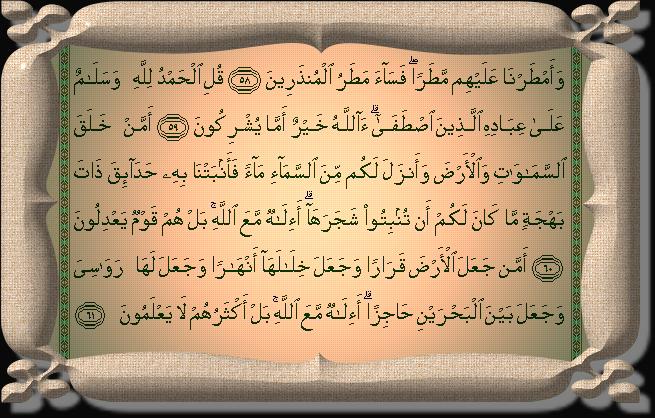 وَأَمْطَرْنَا عَلَيْهِم مَّطَرًاۖ فَسَآءَ مَطَرُ ٱلْمُنذَرِينَ ٥٨ قُلِ ٱلْحَمْدُ لِلَّهِ وَسَلَـٰمٌ
عَلَىٰ عِبَادِهِ ٱلَّذِينَ ٱصْطَفَىٰٓۗ ءَآللَّهُ خَيْرٌ أَمَّا يُشْرِكُونَ ٥٩ أَمَّنْ خَلَقَ
ٱلسَّمَـٰوَٰتِ وَٱلْأَرْضَ وَأَنزَلَ لَكُم مِّنَ ٱلسَّمَآءِ مَآءً فَأَنۢبَتْنَا بِهِۦ حَدَآئِقَ ذَاتَ
بَهْجَةٍ مَّا كَانَ لَكُمْ أَن تُنۢبِتُوا۟ شَجَرَهَآۗ أَءِلَـٰهٌ مَّعَ ٱللَّهِۚ بَلْ هُمْ قَوْمٌ يَعْدِلُونَ
٦٠ أَمَّن جَعَلَ ٱلْأَرْضَ قَرَارًا وَجَعَلَ خِلَـٰلَهَآ أَنْهَـٰرًا وَجَعَلَ لَهَا رَوَٰسِىَ
وَجَعَلَ بَيْنَ ٱلْبَحْرَيْنِ حَاجِزًاۗ أَءِلَـٰهٌ مَّعَ ٱللَّهِۚ بَلْ أَكْثَرُهُمْ لَا يَعْلَمُونَ ٦١